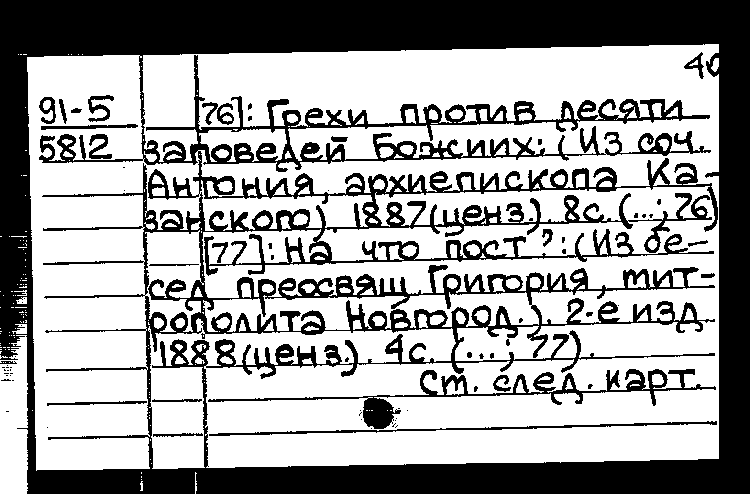 40
91-5 [76]: Грехи против десяти
5812 заповедей Божиих: (Из соч.
Антония, архиепископа Ка-
занского). 1887(ценз.). 8с. (...; 76)
[77]: На что пост?: (Из бе-
сед преосвящ. Григория, мит-
рополита Новгород.). 2-е изд.
1888(ценз.). 4с. (...; 77).
см. след. карт.